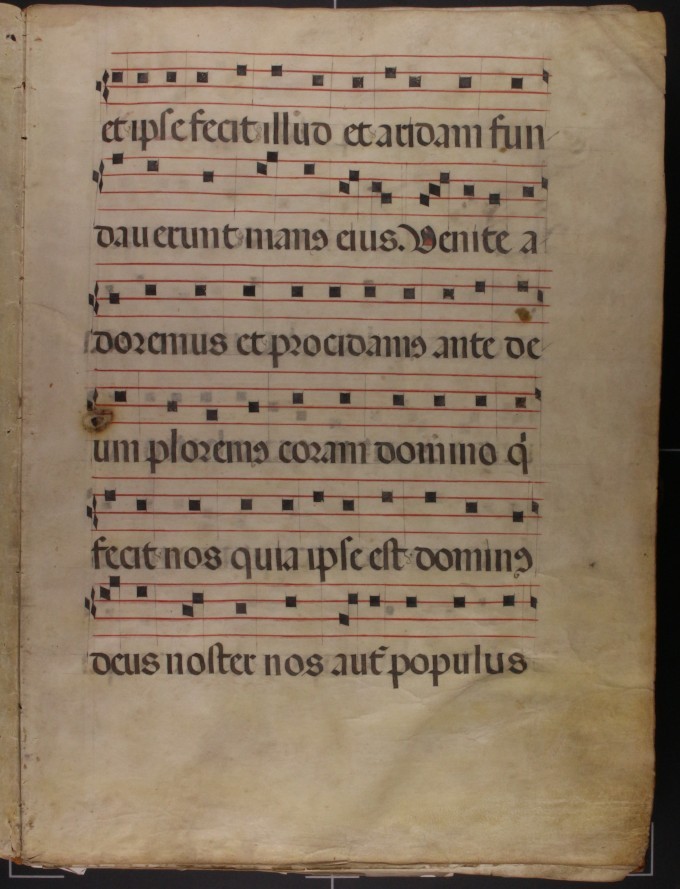 et ipse fecit illud et aridam fun
dauerunt manꝯ eius. Venite a
doremus et procidamꝯ ante de
um ploremꝯ coram domino q̇
fecit nos quia ipse est dominꝯ
deus noster nos aut̄ populus